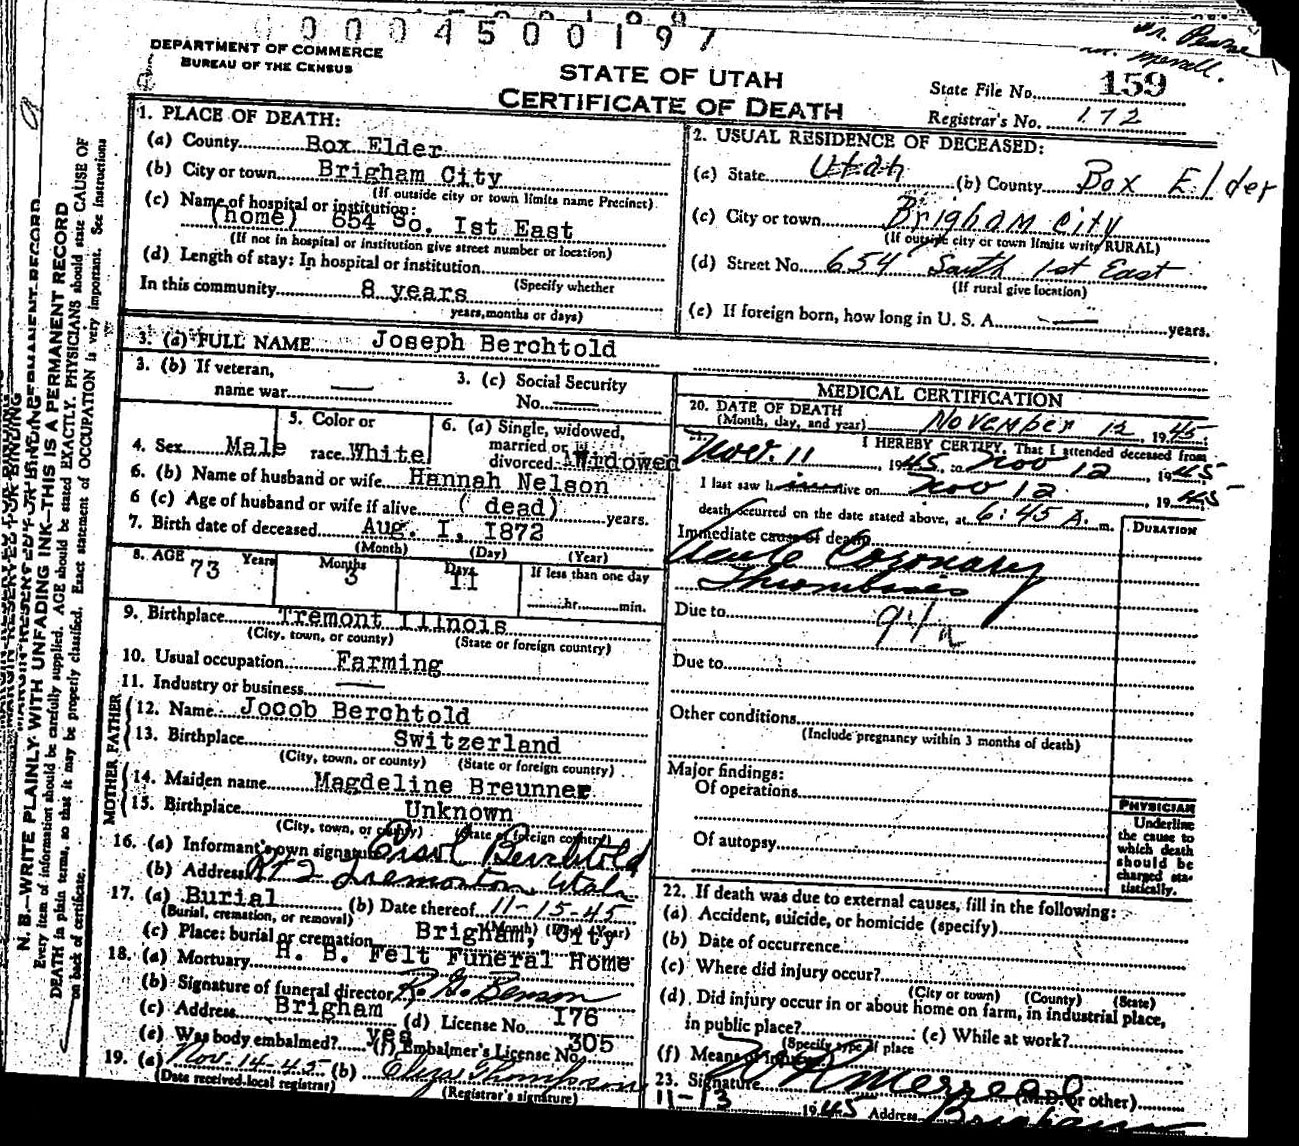 0 0 0 4 5 0 0 1 9 7
DEPARTMENT OF COMMERCE
BUREAU OF THE CENSUS
STATE OF UTAH
CERTIFICATE OF DEATH
State File No. 159
Registrar's No. 172
1. PLACE OF DEATH:
(a) County Box Elder
(b) City or town Brigham City
(If outside city or town limits name Precinct)
(c) Name of hospital or institution:
(home) 654 So. Ist East
(If not in hospital or institution give street number or location)
(d) Length of stay: In hospital or institution
(Specify whether
In this community 8 years
years, months or days)
2. USUAL RESIDENCE OF DECEASED:
(a) State Utah (b) County Box Elder
(c) City or town Brigham City
(If outside city or town limits write RURAL)
(d) Street No. 654 South 1st East
(If rural give location)
(e) If foreign born, how long in U. S. A. — years.
3. (a) FULL NAME Joseph Berchtold
3. (b) If veteran,
name war —
3. (c) Social Security
No. —
4. Sex Male
5. Color or
race White
6. (a) Single, widowed,
married or
divorced Widowed
6. (b) Name of husband or wife Hannah Nelson
6 (c) Age of husband or wife if alive ( dead) years.
7. Birth date of deceased Aug. I, I872
(Month) (Day) (Year)
8. AGE 73 Years Months 3 Days 11 If less than one day
hr. min.
9. Birthplace Tremont Illinois
(City, town, or county) (State or foreign country)
10. Usual occupation Farming
11. Industry or business —
FATHER
12. Name Jocob Berchtold
13. Birthplace Switzerland
(City, town, or county) (State or foreign country)
MOTHER
14. Maiden name Magdeline Breunner
15. Birthplace Unknown
(City, town, or county) (State or foreign country)
16. (a) Informant's own signature Berchtold
(b) Address Rt 2 Tremonton Utah
17. (a) Burial (b) Date thereof 11-15-45
(Burial, cremation, or removal) (Month) (Day) (Year)
(c) Place: burial or cremation Brigham, City
18. (a) Mortuary H. B. Felt Funeral Home
(b) Signature of funeral director R. G. Benson
(c) Address Brigham (d) License No. I76
(e) Was body embalmed? yes (f) Embalmer's License No. 305
19. (a) Nov. 14-45 (b) Thompson
(Date received local registrar) (Registrar's signature)
MEDICAL CERTIFICATION
20. DATE OF DEATH
(Month, day, and year) November 12, 1945
21. I HEREBY CERTIFY, That I attended deceased from
Nov. 11, 1945, to Nov 12, 1945
I last saw him alive on Nov 12, 1945
death occurred on the date stated above, at 6:45 A. m.
DURATION
Immediate cause of death
Acute Coronary
Thrombosis
Due to 94a
Due to
Other conditions
(Include pregnancy within 3 months of death)
Major findings:
Of operations
Of autopsy
PHYSICIAN
Underline
the cause to
which death
should be
charged sta-
tistically.
22. If death was due to external causes, fill in the following:
(a) Accident, suicide, or homicide (specify)
(b) Date of occurrence
(c) Where did injury occur?
(City or town) (County) (State)
(d) Did injury occur in or about home on farm, in industrial place,
in public place? (e) While at work?
(Specify type of place
(f) Means of injury
23. Signature (M.D. or other)
11-13 1945 Address Brigham
N. B.—WRITE PLAINLY WITH UNFADING INK—THIS IS A PERMANENT RECORD
Every item of information should be carefully supplied. AGE should be stated EXACTLY. PHYSICIANS should state CAUSE OF
DEATH in plain terms, so that it may be properly classified. Exact statement of OCCUPATION is very important. See instructions
on back of certificate.